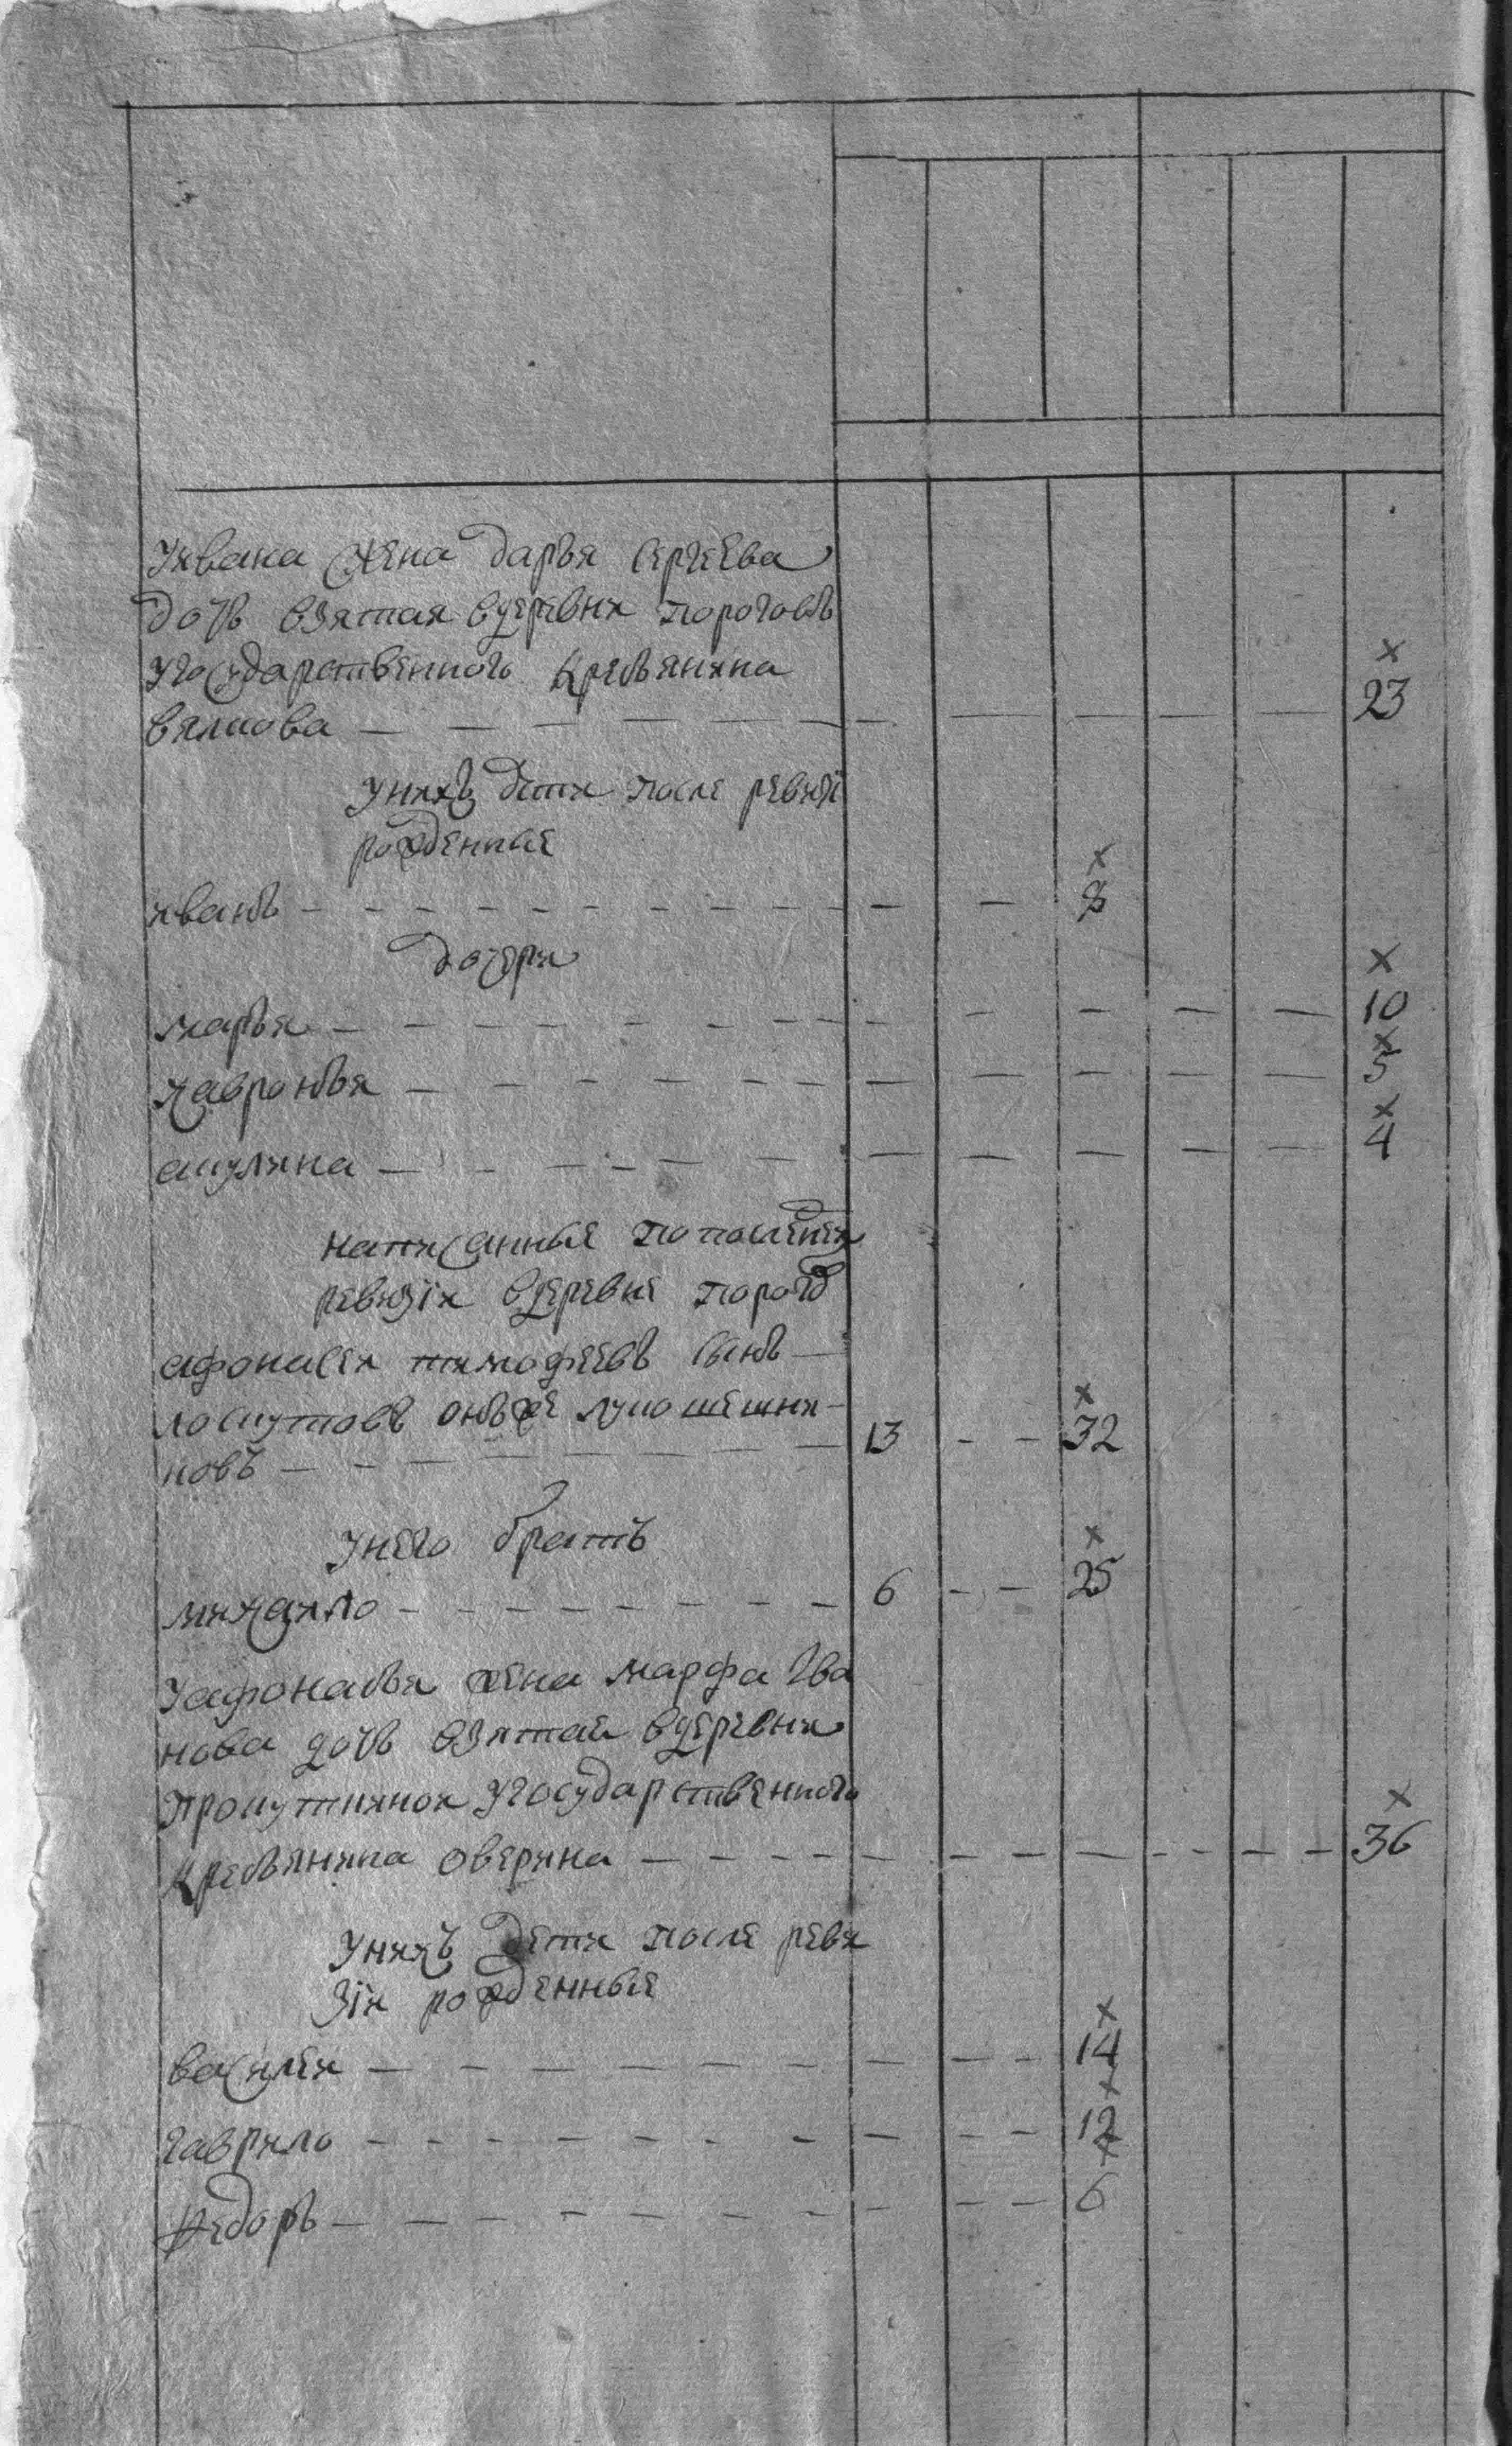 Уивана жена дарья сергеева
дочь взятая вдеревни пороговъ
угосударственного крестьянина
вялкова — 23
униχъ дети после ревизїи
рожденные
иванъ — 8
дочери
марья — 10
хавронья — 5
акулина — 4
написанные попоследней
ревизїи вдеревне порогъ
афонасей тимофеевъ сынъ
лоскутовъ онъже лукошешни-
ковъ — 13 — 32
унего братъ
михаило — 6 — 25
Уафонасья жена марфа Ива
нова дочь взятая вдеревни
прокутинской угосударственного
крестьянина оверина — 36
унихъ дети после реви
зїи рожденные
василей — 14
гаврило — 12
федоръ — 6